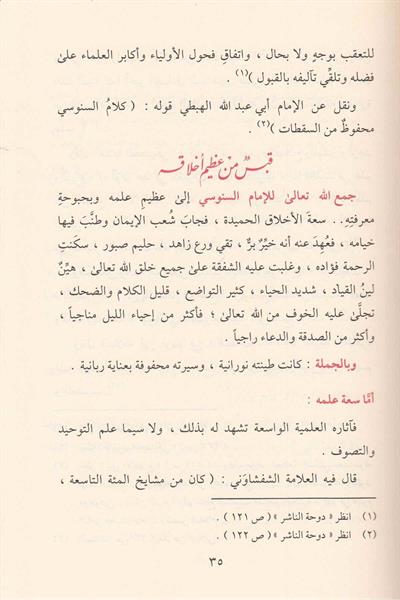 للتعقب بوجهٍ ولا بحال ، واتفاقِ فحول الأولياء وأكابر العلماء علىٰ
فضله وتلقِّي تآليفه بالقبول )(١) .
ونقل عن الإمام أبي عبد الله الهبطي قوله : ( كلامُ السنوسي
محفوظٌ من السقطات )(٢) .
قبسٌ من عظيم أخلاقه
جمع الله تعالىٰ للإمام السنوسي إلىٰ عظيمِ علمه وبحبوحةِ
معرفتهِ .. سعةَ الأخلاق الحميدة ، فجابَ شُعب الإيمان وطنَّبَ فيها
خيامه ، فعُهِدَ عنه أنه خيِّرٌ برٌّ ، تقي ورع زاهد ، حليم صبور ، سكَنتِ
الرحمة فؤاده ، وغلبت عليه الشفقة علىٰ جميع خلق الله تعالىٰ ، هيِّنٌ
لينُ القياد ، شديد الحياء ، كثير التواضع ، قليل الكلام والضحك ،
تجلَّىٰ عليه الخوف من الله تعالىٰ ؛ فأكثر من إحياء الليل مناجياً ،
وأكثر من الصدقة والدعاء راجياً .
وبالجملة : كانت طينته نورانية ، وسيرته محفوفة بعناية ربانية .
أمَّا سعة علمه :
فآثاره العلمية الواسعة تشهد له بذلك ، ولا سيما علم التوحيد
والتصوف .
قال فيه العلامة الشفشاوَني : ( كان من مشايخ المئة التاسعة ،
(١) انظر « دوحة الناشر » ( ص ١٢١ ) .
(٢) انظر « دوحة الناشر » ( ص ١٢٢ ) .
٣٥